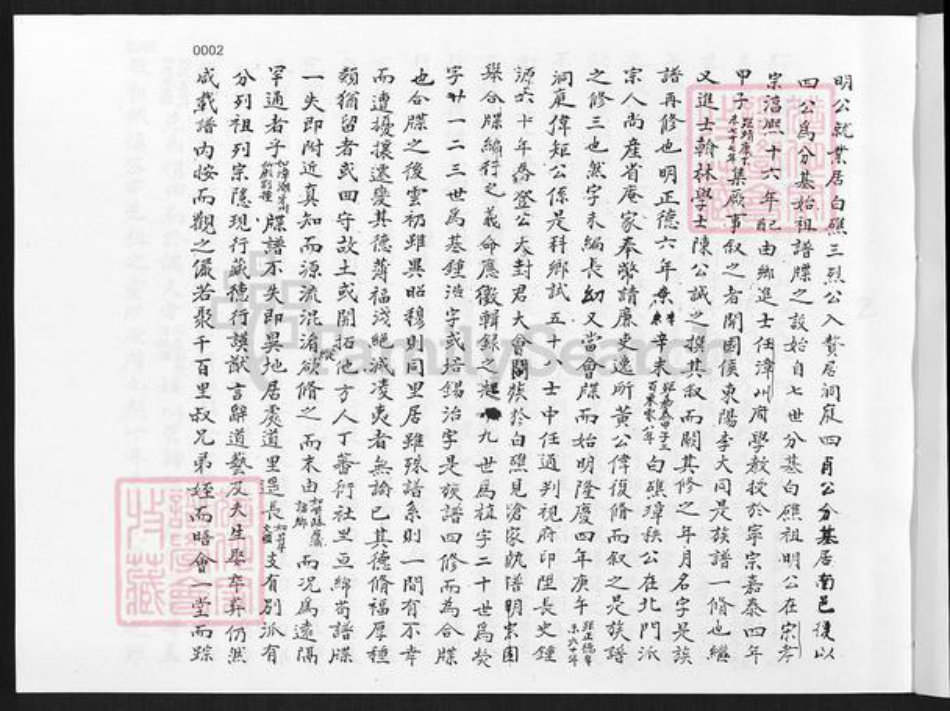 0002
明公就業居白礁三烈公入贅居洞庭四肖公分基居南邑後以
四公為分基始祖譜牒之設始自七世分基白礁祖明公在宋孝
宗淳熙十六年配由鄉進士任漳州府學教授於寧宗嘉泰四年
甲子集厥事叙之者開國侯東陽李大同是族譜一脩也繼
又進士翰林學士陳公誠之撰其叙而闕其修之年月名字是族
譜再修也明正德六年辛未白礁璋秩公在北門派
宗人尚產省庵家奉幣請廉吏逸所黃公偉復脩而叙之是族譜
之修三也然字未編長幼又當會牒而始明隆慶四年庚午
洞庭偉矩公係是科鄉試五十八士中任通判視府印陞長史鍾
源六十年喬登公大封君大會闗族於白礁見滄家甋璔明宗圖
舉合牒編行之義命應徵輯錄之九世為植字二十世為熒
字廿一二三世為基鍾浩字或培錫治字是族譜四修而為合牒
也合牒之後雲礽雖異昭穆則同里居雖殊譜系則一間有不幸
而遭擾攘遷變其德薄福淺絕滅凌夷者無論已其德脩福厚種
類猶留者或四守故土或開拓他方人丁蕃衍社里亘綿苟譜牒
一失即附近真知而源流混淆欲脩之而末由而況為遠隔
罕通者乎牒譜不失即異地居處道里遥長支有別派有
分列祖列宗隱現行藏德行謨猷言辭道藝及夫生娶卒葬仍然
咸載譜內按而觀之儼若聚千百里叔兄弟姪而晤會一堂而踪
FamilySearch